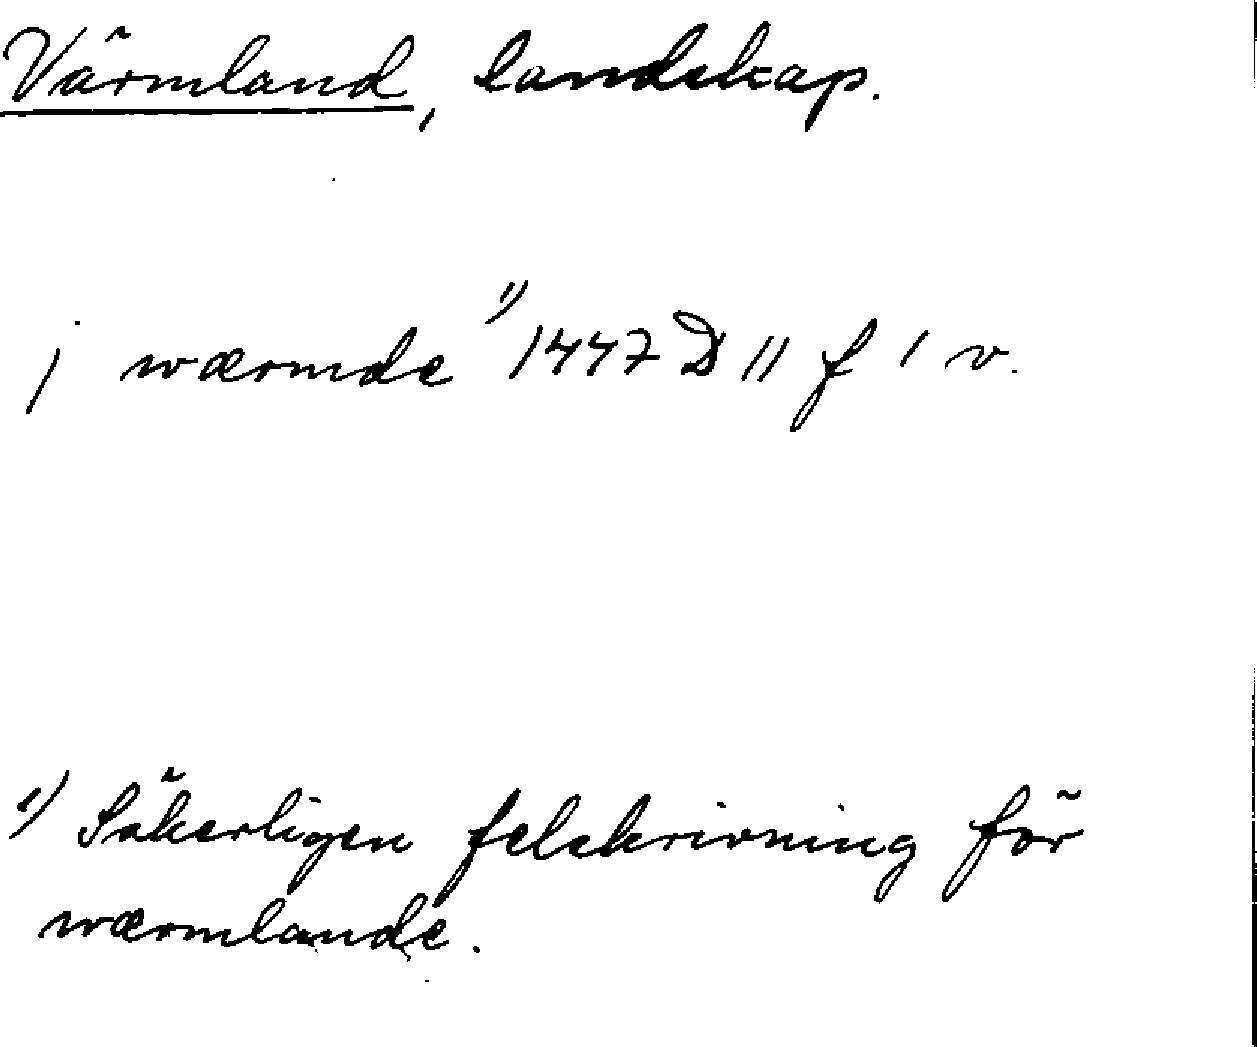 Värmland, landskap.
j wærmde 1) 1447 D 11 f 1 v.
1) Säkerligen felskrivning för
wærmlande.